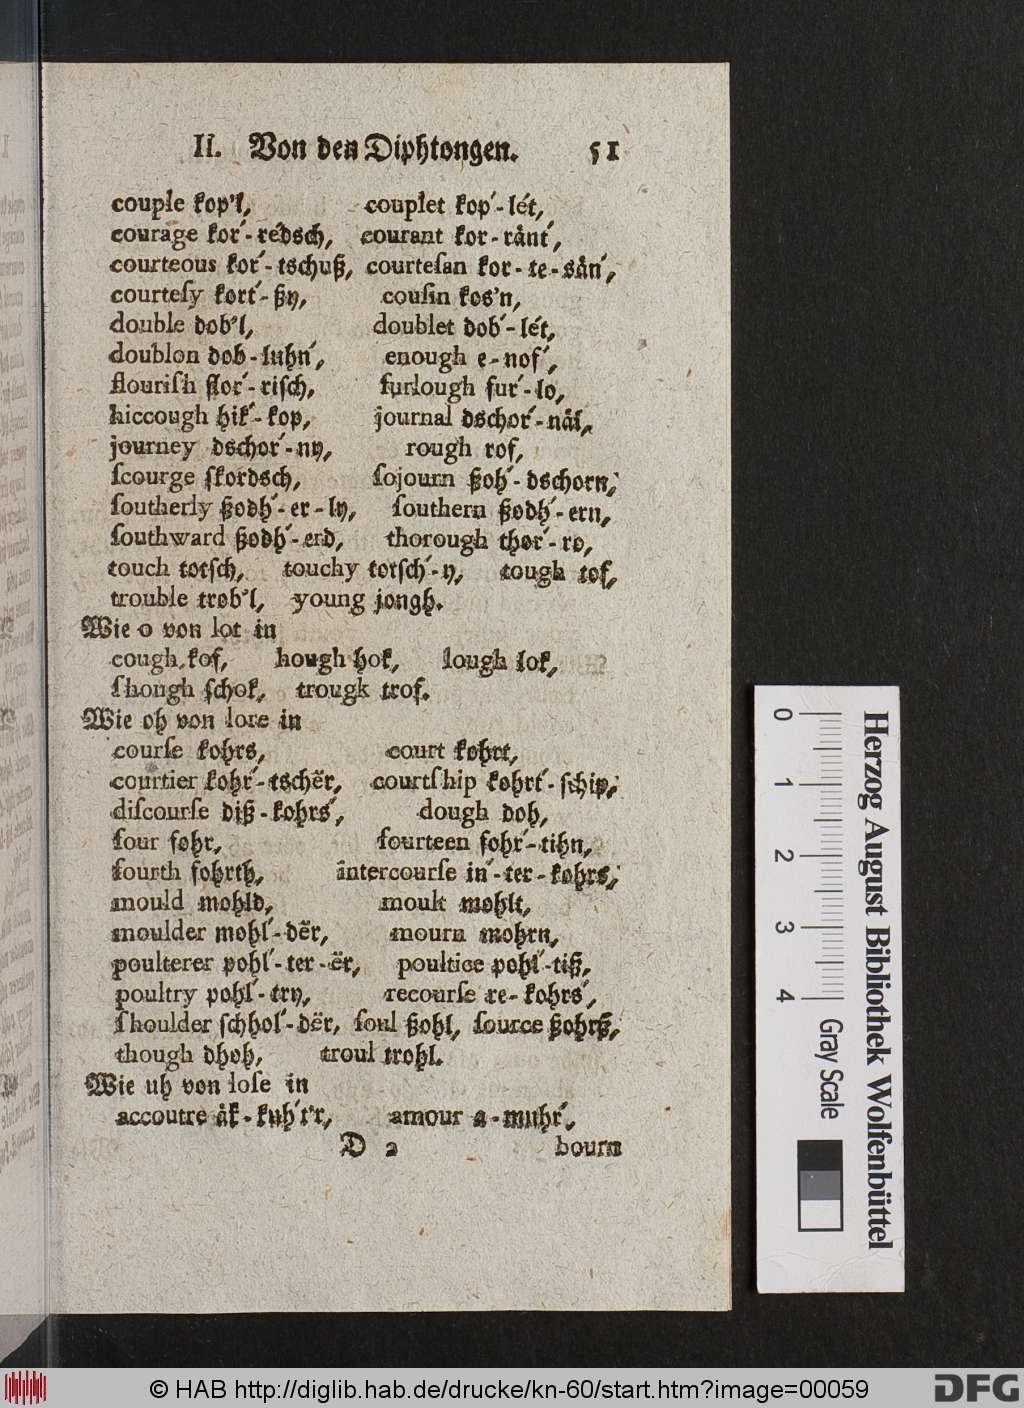 II. Von den Diphtongen. 51
couple kop'l, couplet kop´-lét,
courage kor´-rédsch, courant kor-rånt´,
courteous kor´-tschuß, courteſan kor-te-sån´,
courteſy kort´-ßy, couſin kos'n,
double dob'l, doublet dob´-lét,
doublon dob-luhn´, enough e-nof´,
flouriſh flor´-riſch, furlough fur´-lo,
hiccough hik´-kop, journal dschor´-nål,
journey dschor´-ny, rough rof,
ſcourge ſkordsch, ſojourn ßoh´-dschorn,
ſoutherly ßodh´-er-ly, ſouthern ßodh´-ern,
ſouthward ßodh´-erd, thorough thor´-ro,
touch totſch, touchy totſch´-y, tough tof,
trouble trob'l, young jongh.
Wie o von lot in
cough kof, hough hok, lough lok,
ſhough ſchok, trougk trof.
Wie oh von lore in
courſe kohrs, court kohrt,
courtier kohr´-tschër, courtſhip kohrt´-ſchip,
diſcourſe diß-kohrs´, dough doh,
four fohr, fourteen fohr´-tihn,
fourth fohrth, intercourſe in´-ter-kohrs,
mould mohld, moult mohlt,
moulder mohl´-dër, mourn mohrn,
poulterer pohl´-ter-ër, poultice pohl´-tiß,
poultry pohl´-try, recourſe re-kohrs´,
ſhoulder ſchhol´-dër, ſoul ßohl, ſource ßohrß,
though dhoh, troul trohl.
Wie uh von loſe in
accoutre åk-kuh´t'r, amour a-muhr´,
D 2 bourn
0 1 2 3 4 Gray Scale
Herzog August Bibliothek Wolfenbüttel
© HAB http://diglib.hab.de/drucke/kn-60/start.htm?image=00059
DFG